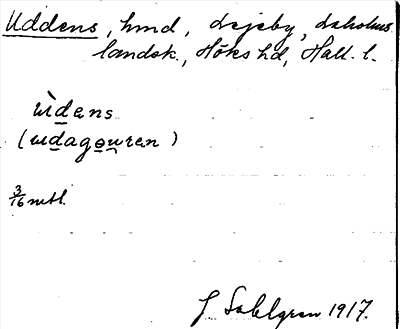 Uddens, hmd, Dejeby, Laholms
landsk., Höks hd, Hall. l.
ùdens
(udagouren)
3/16 mtl.
J. Sahlgren 1917.